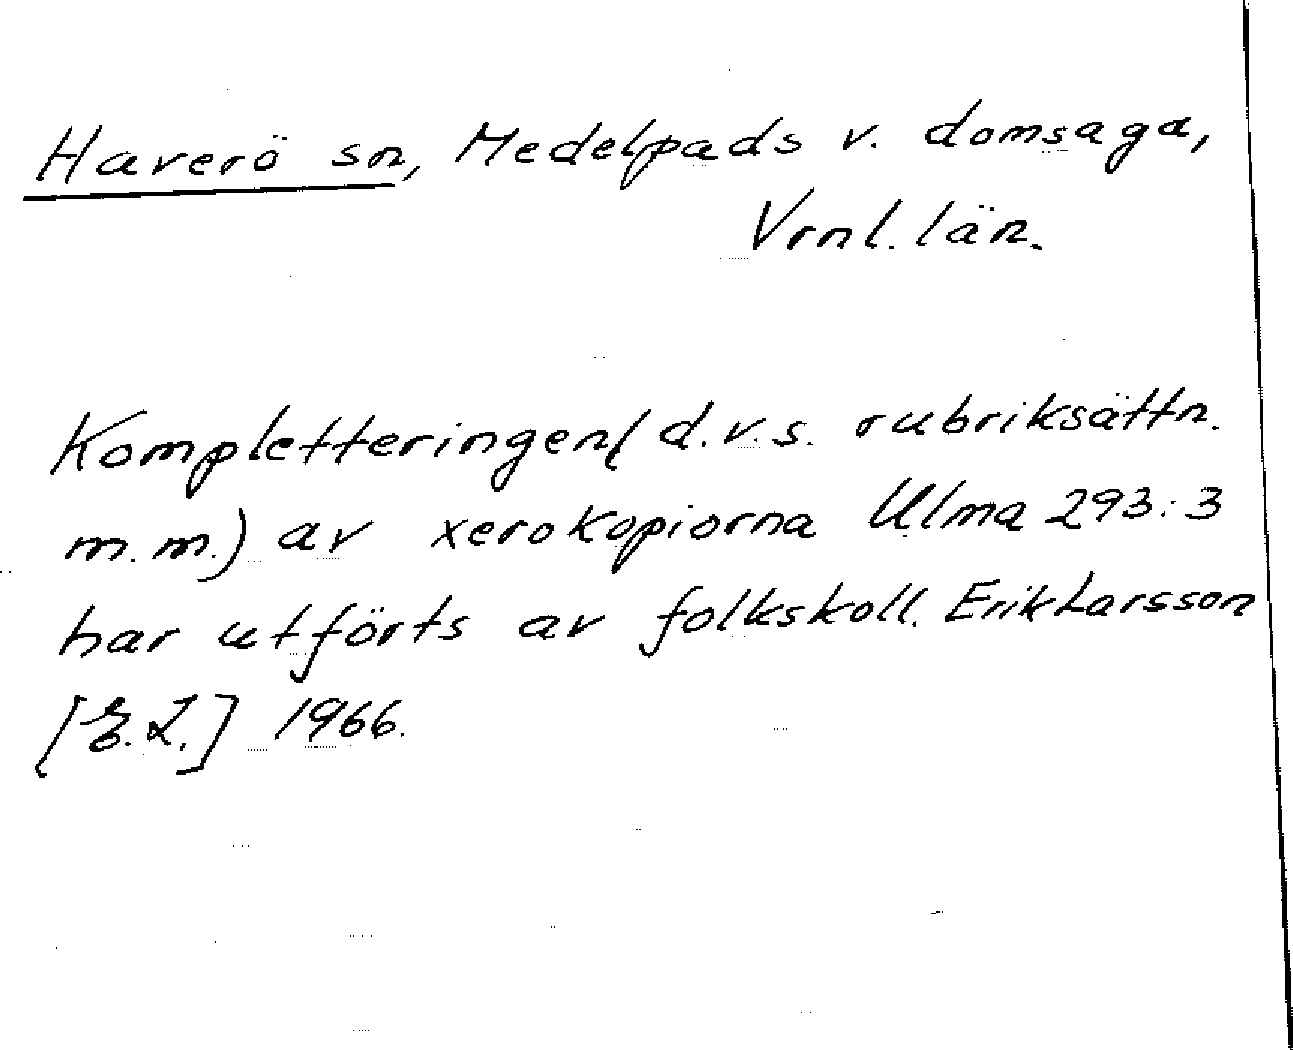 Haverö sn, Medelpads v. domsaga,
Vrnl. län.
Kompletteringen( d.v.s. rubriksättn.
m.m.) av xerokopiorna Ulma 293:3
har utförts av folkskoll. Erik Larsson
[E.L.] 1966.